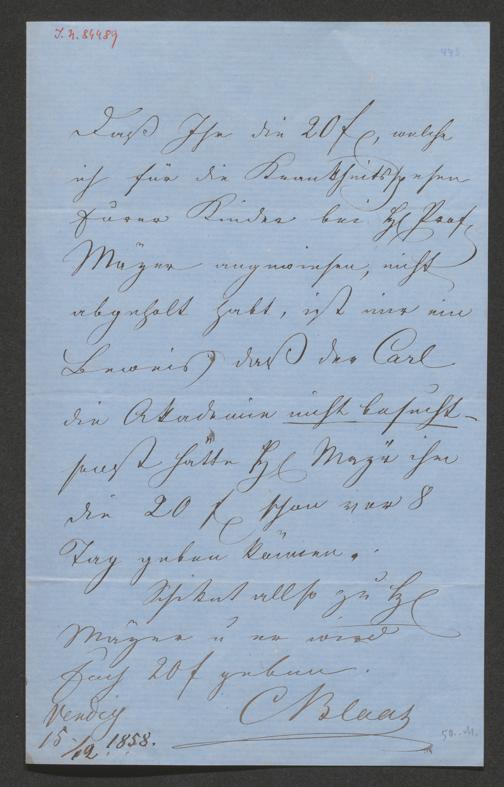 J. N. 84489
Daß Ihr die 20 f, welche
ich für die Krankheitsspesen
Eurer Kinder bei H Prof.
Mayer angewiesen, nicht
abgeholt habt, ist mir ein
Beweis daß der Carl
die Akademie nicht besucht -
sonst hätte H Mayer ihm
die 20 f schon vor 8
Tag geben können.
Schikt allso zu H
Mayer u er wird
Euch 20 f geben.
Vendig
CBlaas
15/12 1858.